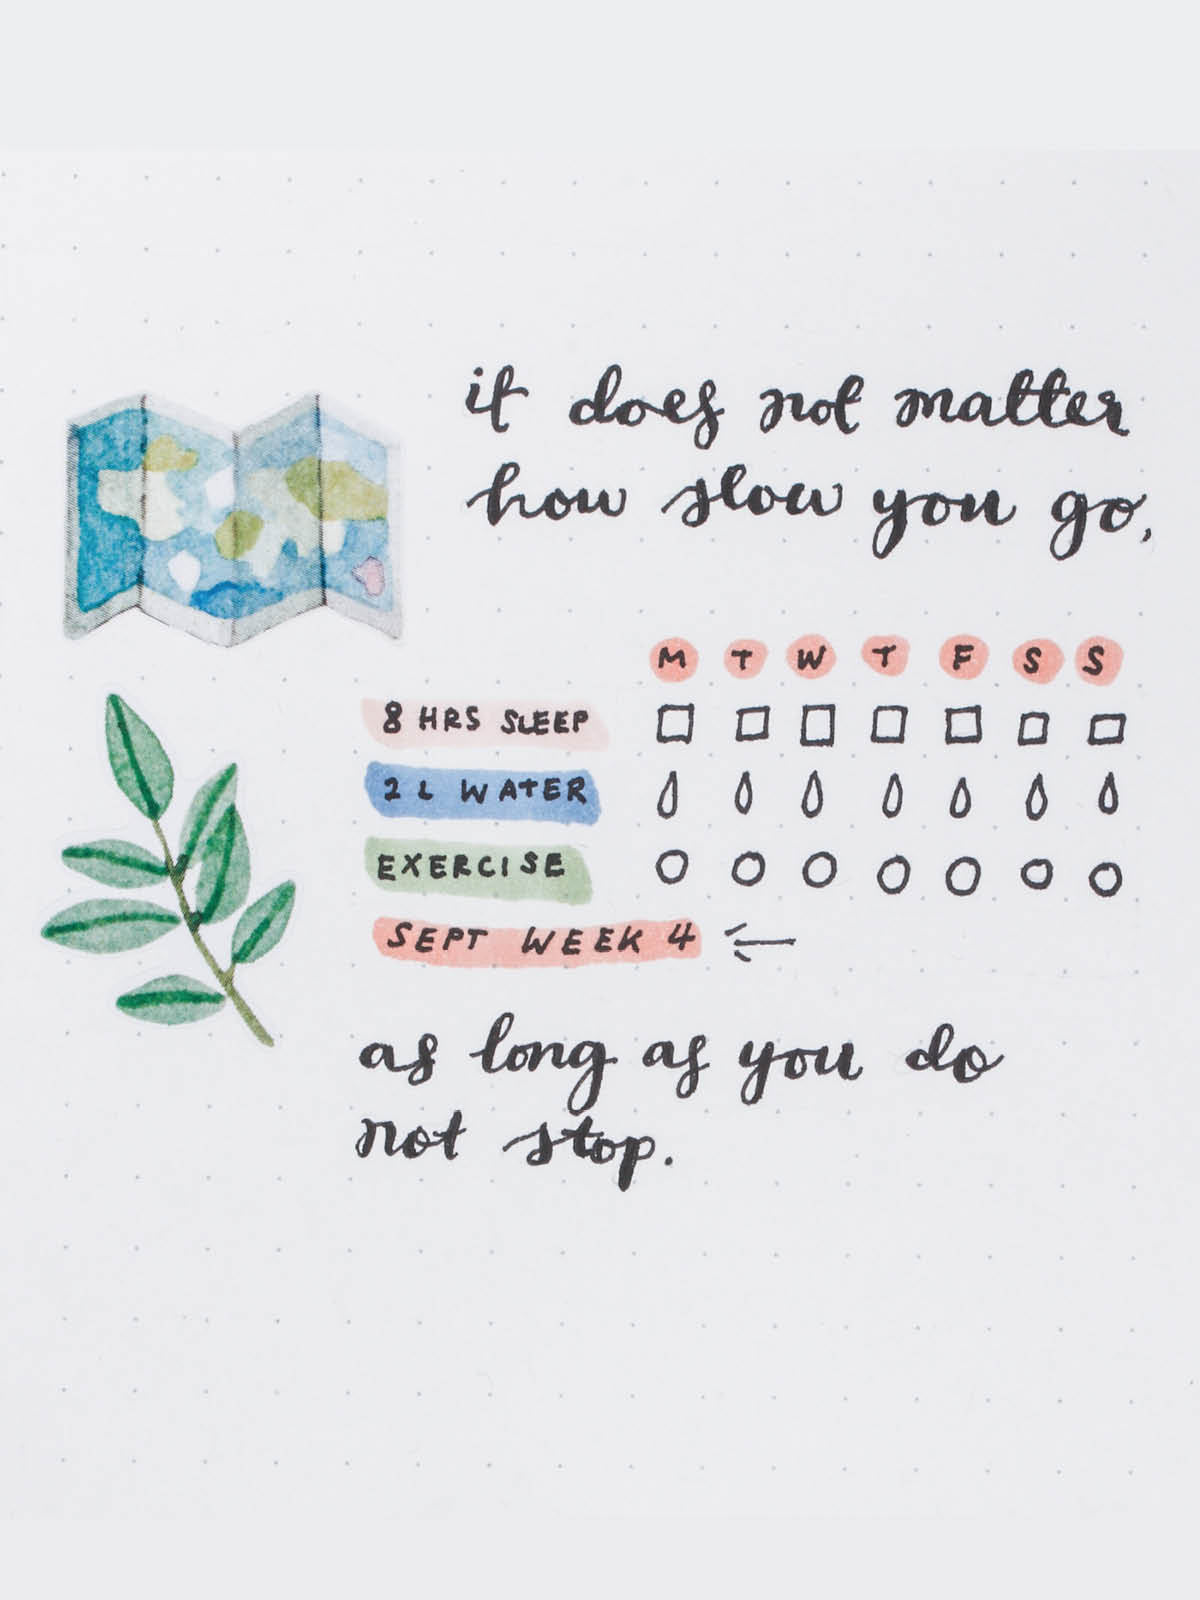 it does not matter
how slow you go,
M T W T F S S
8 HRS SLEEP
2 L WATER
EXERCISE
SEPT WEEK 4
as long as you do
not stop.